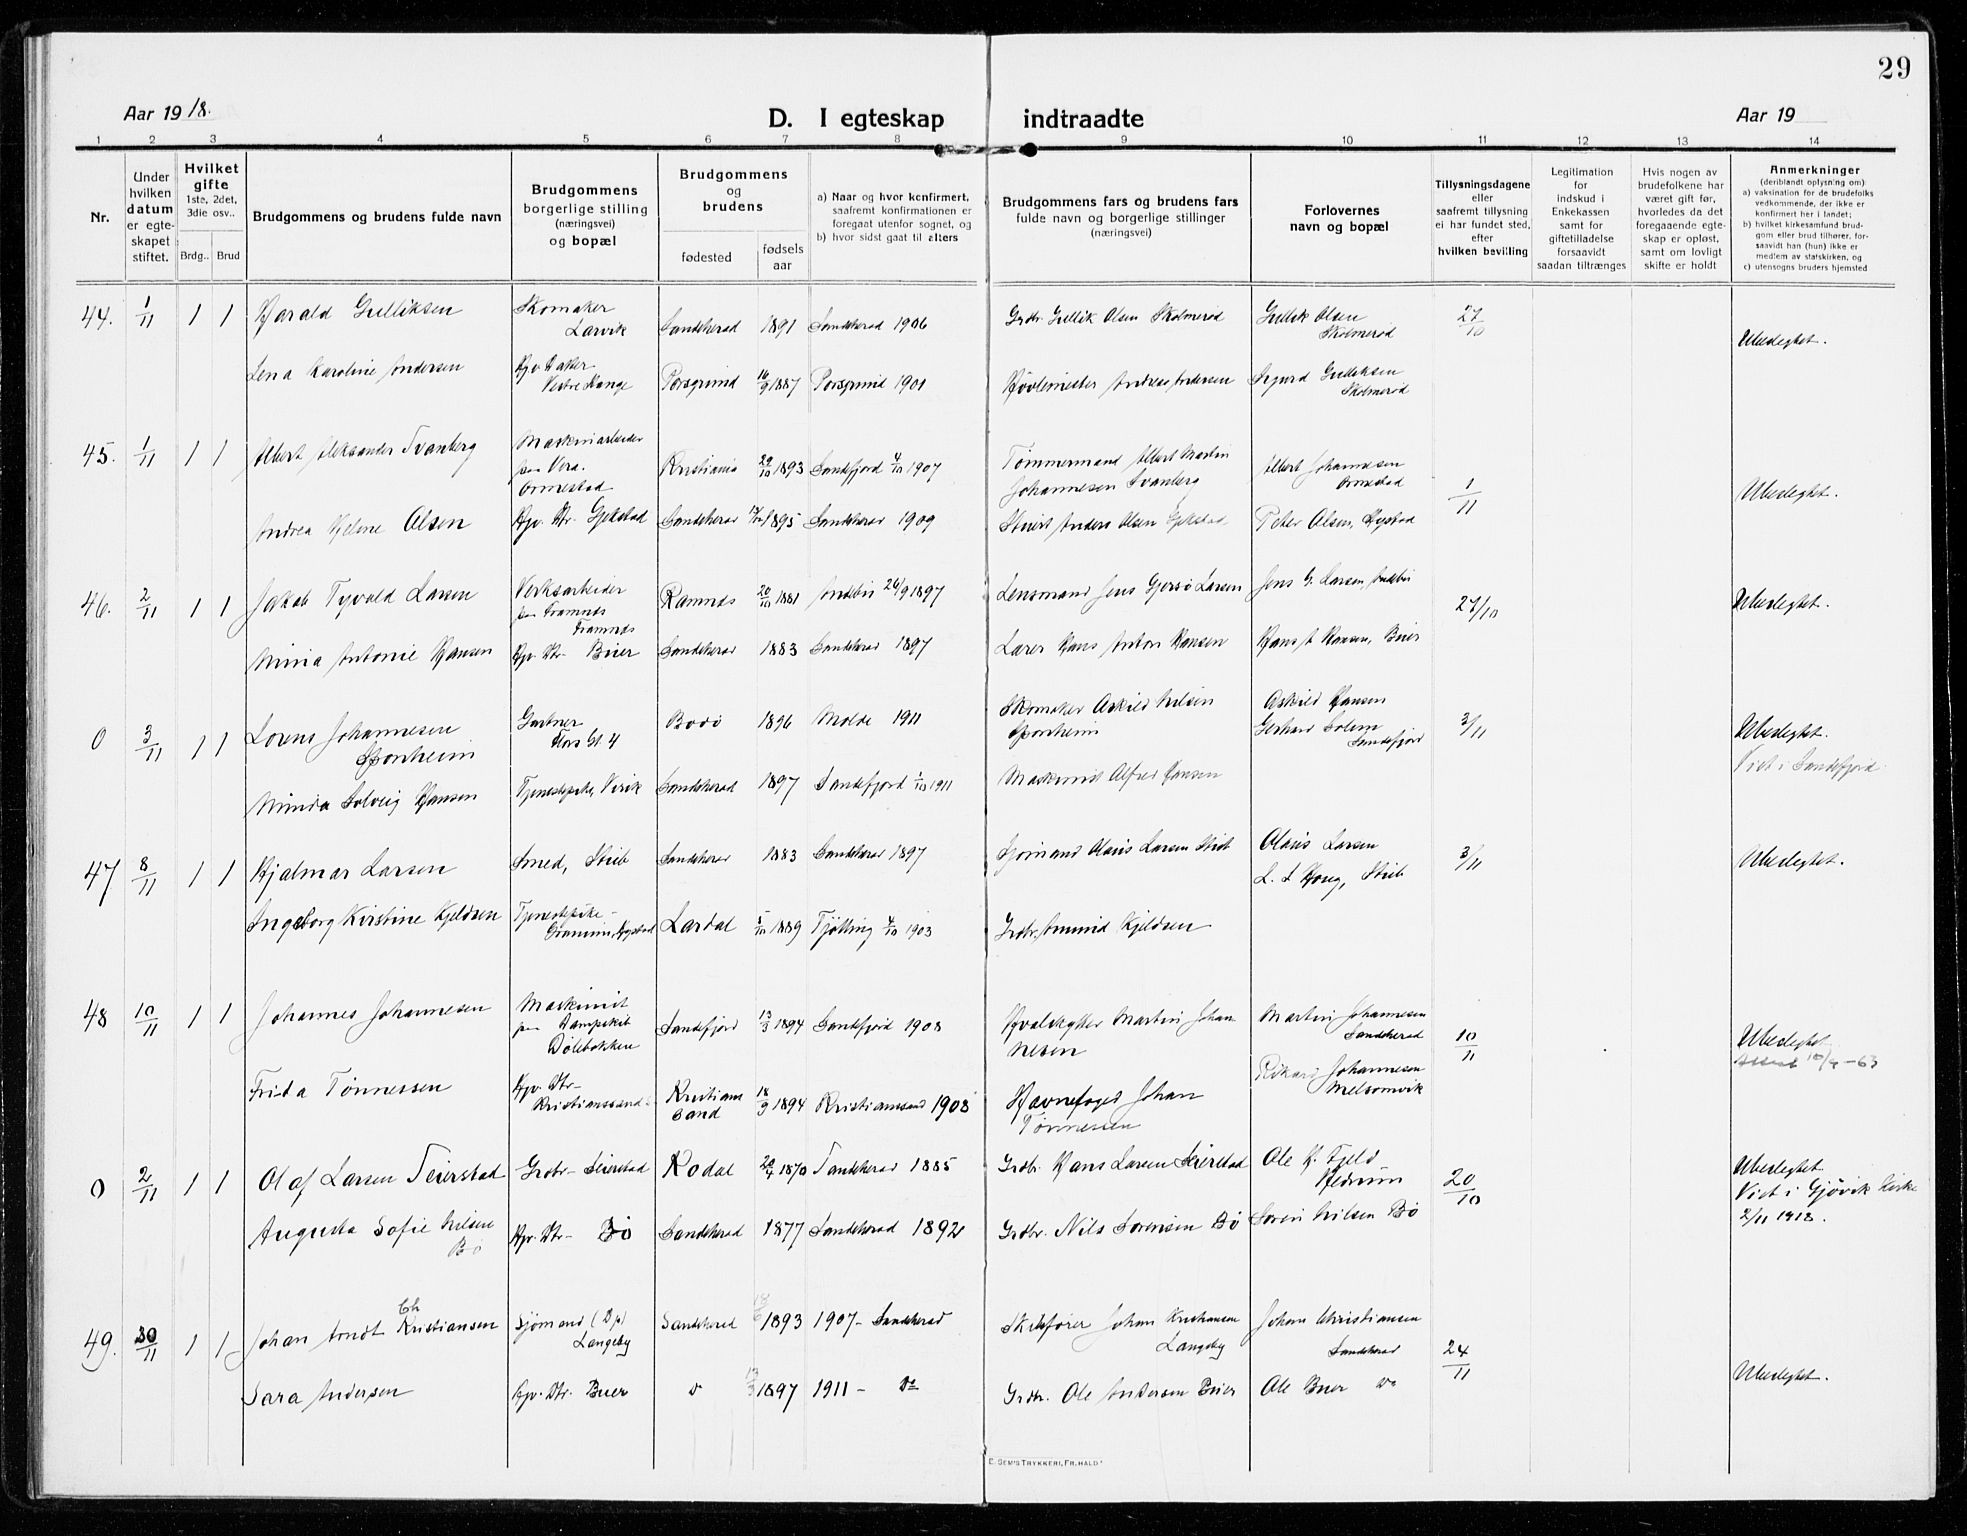 29
Aar 1918.
D. I egteskap indtraadte
Aar 19
1 2 3 4 5 6 7 8 9 10 11 12 13 14
Nr.
Under hvilken datum er egteskapet stiftet.
Hvilket gifte
1ste, 2det, 3die osv..
Brdg.. Brud
Brudgommens og brudens fulde navn
Brudgommens borgerlige stilling (næringsvei) og bopæl
Brudgommens og brudens
fødested
fødsels aar
a) Naar og hvor konfirmert, saafremt konfirmationen er foregaat utenfor sognet, og
b) hvor sidst gaat til alters
Brudgommens fars og brudens fars fulde navn og borgerlige stillinger (næringsvei)
Forlovernes navn og bopæl
Tillysningsdagene eller saafremt tillysning ei har fundet sted, efter hvilken bevilling
Legitimation for indskud i Enkekassen samt for giftetilladelse forsaavidt saadan tiltrænges
Hvis nogen av brudefolkene har været gift før, hvorledes da det foregaaende egteskap er opløst, samt om lovligt skifte er holdt
Anmerkninger
(deriblandt oplysning om)
a) vaksination for de brudefolks vedkommende, der ikke er konfirmert her i landet;
b) hvilket kirkesamfund brudgom eller brud tilhører, forsaavidt han (hun) ikke er medlem av statskirken, og
c) utensogns bruders hjemsted
44. 1/11 1 1 Harald Gulliksen Skomaker Larvik Sandeherad 1891 Sandeherad 1906 Grdbr. Gullik Olsen Skolmerød Gullik Olsen Skolmerød 27/10 Ubeslegtet.
Lena Karoline Andersen Porsgrund 16/9 1887 Porsgrund 1901 Høvlemester Andreas Andersen Sigurd Gulliksen Skolmerød
45. 1/11 1 1 Albert Aleksander Svanberg Maskinarbeider paa Vera. Ormestad Kristiania 29/10 1893 Sandefjord 4/10 1907 Tømmermand Albert Martin Johannesen Svanberg Albert Johannesen Ormestad 1/11 Ubeslegtet.
Andrea Helene Olsen Hjv. Dtr. Gjekstad Sandeherad 1895 Sandeherad 1909 Anders Olsen Gjekstad Peter Olsen, Hystad
46. 2/11 1 1 Jakob Tyvald Larsen Verksarbeider paa Framnæs Framnæs Ramnæs 20/10 1881 Andebu 26/9 1897 Lensmand Jens Gjersø Larsen Jens G. Larsen, Andebu 27/10 Ubeslegtet.
Minia Antonie Hansen Hjv. Dtr. Buer Sandeherad 1883 Sandeherad 1897 Lærer Hans Anton Hansen Hans A Hansen, Buer
0 3/11 1 1 Lorens Johannesen Sponheim Gartner Thors Gt. 4 Bodø 1896 Molde 1911 Skomaker Askild Nilsen Sponheim Askild Hansen Gerhard Solem Sandefjord 3/11 Ubeslegtet. Viet i Sandefjord.
Minda Solveig Hansen Tjenestepike, Virik Sandeherad 1897 Sandefjord 1/10 1911 Maskinist Alfred Hansen
47 8/11 1 1 Hjalmar Larsen Smed, Stub Sandeherad 1883 Sandeherad 1897 Sjømand Olaus Larsen Stub Olaus Larsen 3/11 Ubeslegtet.
Ingeborg Kirstine Kjeldsen Tjenestepike - Hystad Lardal 5/10 1889 Tjølling 4/10 1903 Grdbr. Amund Kjeldsen L. A Haug, Stub
48 10/11 1 1 Johannes Johannesen Maskinist paa Dampskib Dølebakken Sandefjord 13/3 1894 Sandefjord 1908 Hvalskytter Martin Johannesen Martin Johannesen Sandeherad 10/11 Ubeslegtet
Frida Tønnessen Hjv. Dtr- Kristianssand. Kristianssand 18/9 1894 Kristianssand 1908 Havnefoged Johan Tønnessen Rikard Johannesen Melsomvik
0 2/11 1 1 Olaf Larsen Seierstad Grdbr- Seierstad Kodal 29/4 1870 Sandeherad 1885 Grdbr. Hans Larsen Seierstad Ole H. Fjeld Hedrum 20/10 Ubeslegtet. Viet i Gjøvik Kirke 2/11 1918.
Augusta Sofie Nilsen Bø Hjv. Dtr- Bø Sandeherad 1877 Sandeherad 1892 Grdbr. Nils Sørensen Bø Søren Nilsen Bø
49. 30/11 1 1 Johan Arndt Kristiansen Ch Sjømand (Dp) Langeby Sandeherad 18/6 1893 1907- Sandeherad Skibsfører Johan Kristiansen Langeby Johan Christiansen Sandeherad 24/11 Ubeslegtet.
Sara Andersen Hjv. Dtr. Buer 13/3 1897 1911 - Do Grdbr. Ole Andersen Buer Ole Buer Do
E. SEM'S TRYKKERI, FR.HALD.